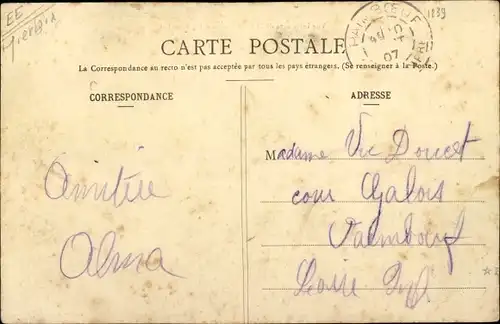 EE
1839
CARTE POSTALE
La Correspondance au recto n'est pas acceptée par tous les pays étrangers. (Se renseigner à la Poste.)
CORRESPONDANCE
ADRESSE
07
Amitié
Alma
Madame Vve Doucet
cour Galois
Paimbœuf
Loire Inf